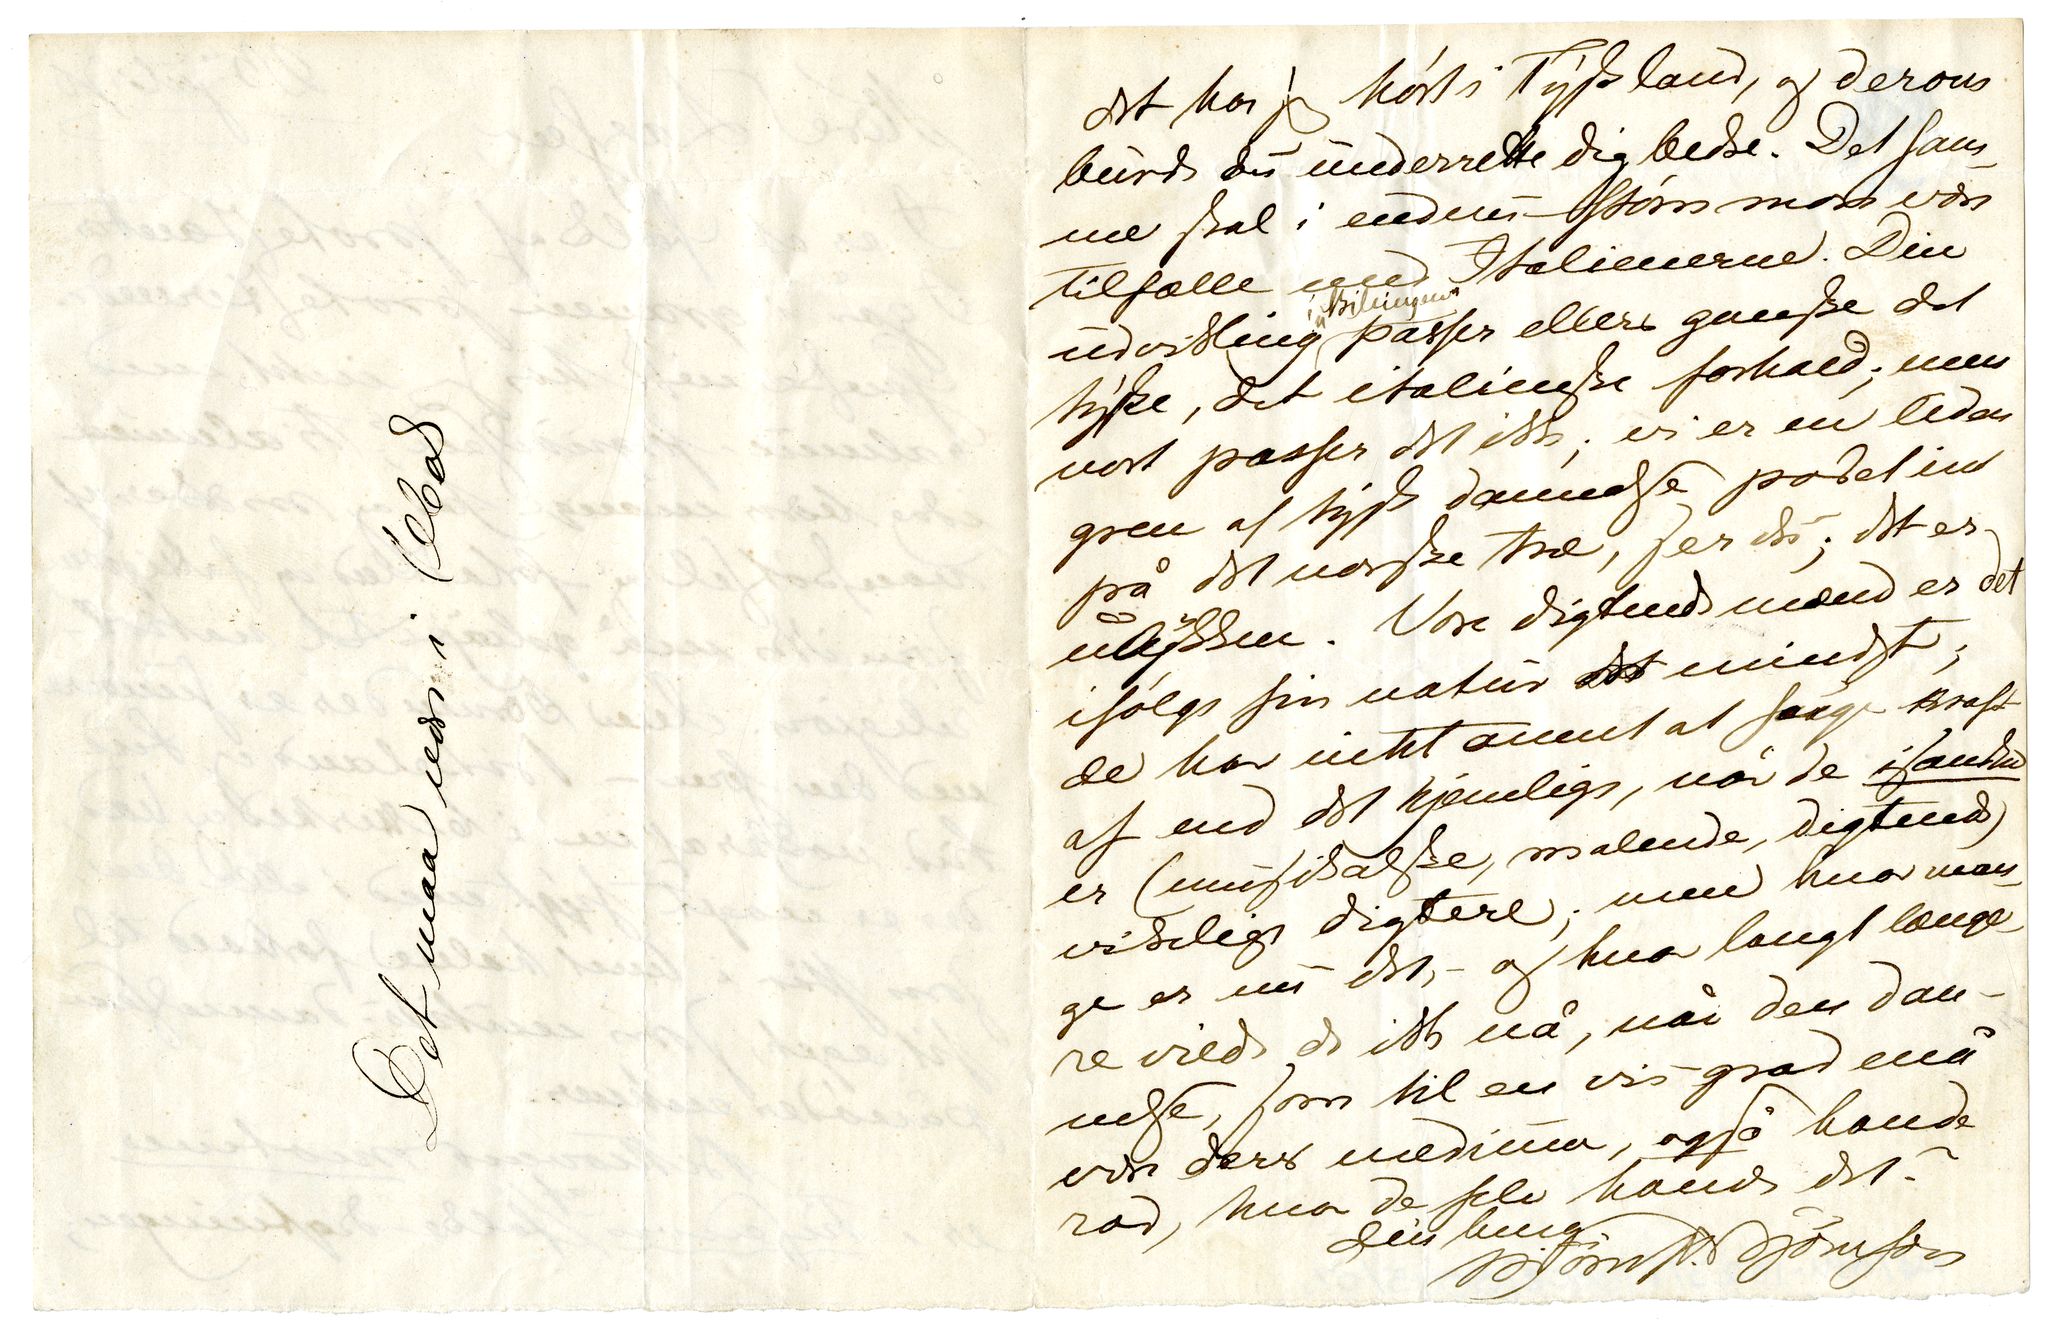 Det maa være i Ilbod
det har jeg hørt i Tyskland, og derom
burde du underrette dig bedre. Det sam-
me skal i endnu større mon være
tilfælle med Italienerne. Din
udvikling i Bilingen passer ellers ganske det
tyske, det italienske forhold; men
vort passer det ikke; vi er en liden
gren af tysk dannelse podet ind
på det norske træ, ser du; det er
ulykken. Vore digtende mænd er det
ifølge sin natur mindst;
de har intet annet at suge kraft
af end det hjemlige, når de isandhed
er (musikalske, malende, digtende)
virkelige digtere; men hvor man-
ge er nu det, – og hvor langt længe-
re vilde de ikke nå, når den dan-
nelse, som til en vis grad må
være deres medium, også havde
rod, hvor de selv havde det?
din ven
Bjørnst. Bjørnson